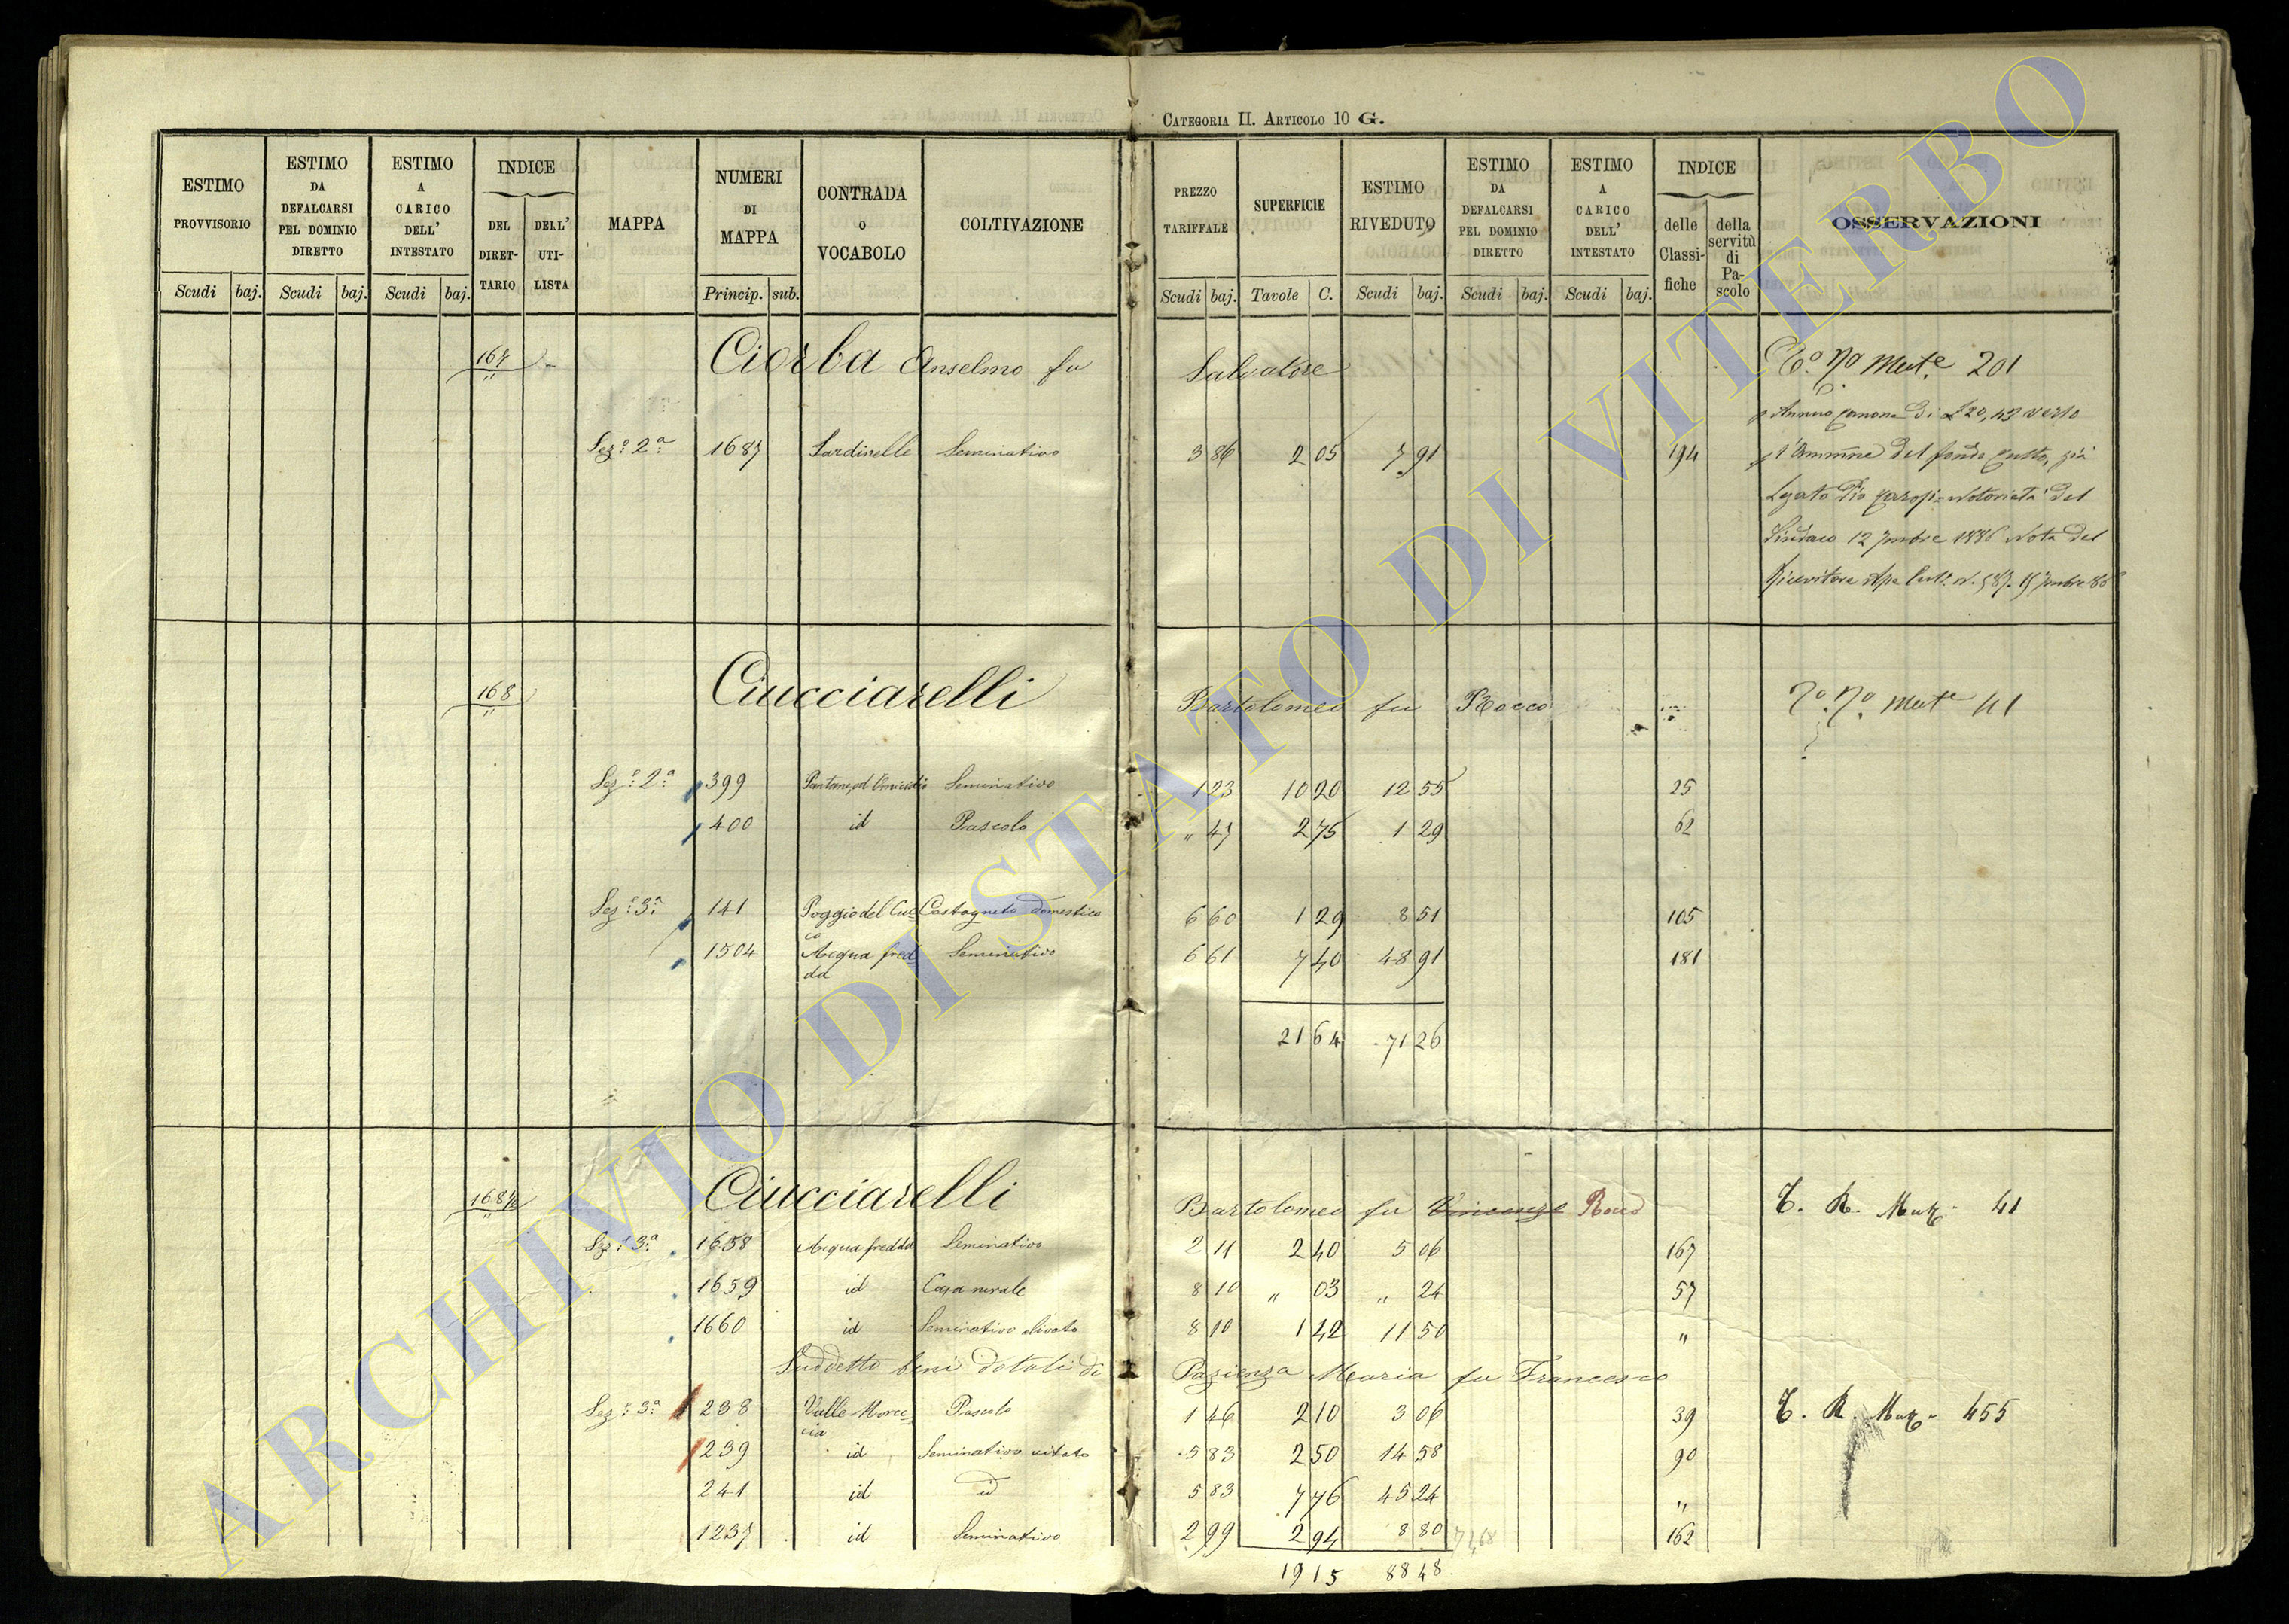 CATEGORIA II. ARTICOLO 10 G.
ESTIMO PROVVISORIO
ESTIMO DA DEFALCARSI PEL DOMINIO DIRETTO
ESTIMO A CARICO DELL' INTESTATO
INDICE
DEL DIRET-TARIO
DELL' UTI-LISTA
MAPPA
NUMERI DI MAPPA
CONTRADA O VOCABOLO
COLTIVAZIONE
PREZZO TARIFFALE
SUPERFICIE
ESTIMO RIVEDUTO
ESTIMO DA DEFALCARSI PEL DOMINIO DIRETTO
ESTIMO A CARICO DELL' INTESTATO
INDICE
delle Classi-fiche
della servitù di Pa-scolo
OSSERVAZIONI
Scudi baj. Scudi baj. Scudi baj. Princip. sub. Scudi baj. Tavole C. Scudi baj. Scudi baj. Scudi baj.
167 Ciorba Anselmo fu Salvatore Mut.e 201
Annuo canone di £ 20,43 verso
Sez.e 2a 1687 Sardinelle Seminativo 3 86 2 05 7 91 194 l'Ammne del fondo Culto, già
Legato Pio Notorietà del
Sindaco 12 1886 Nota del
Ricevitore
168 Ciucciarelli Bartolomeo fu Rocco Mut.e 41
Sez.e 2a 399 Seminativo 1 23 10 20 12 55 25
400 id Pascolo " 47 2 75 1 29 62
Sez.e 3a 141 Poggio del Cuc=co Castagneto domestico 6 60 1 29 8 51 105
1504 Acqua fred=da Seminativo 6 61 7 40 48 91 181
21 64 71 26
168½ Ciucciarelli Bartolomeo fu Vincenzo Rocco T. R. Mut.e 41
Sez.e 3a 1658 Acqua fredda Seminativo 2 11 2 40 5 06 167
1659 id Casa rurale 8 10 " 03 " 24 57
1660 id Seminativo olivato 8 10 1 42 11 50 "
Suddetto beni dotali di Pazienza Maria fu Francesco
Sez.e 3a 238 Valle Moruc=cia Pascolo 1 46 2 10 3 06 39 T. R. Mut.e 455
239 id Seminativo vitato 5 83 2 50 14 58 90
241 id id 5 83 7 76 45 24 "
1237 id Seminativo 2 99 2 94 8 80 162
19 15 88 48
ARCHIVIO DI STATO DI VITERBO